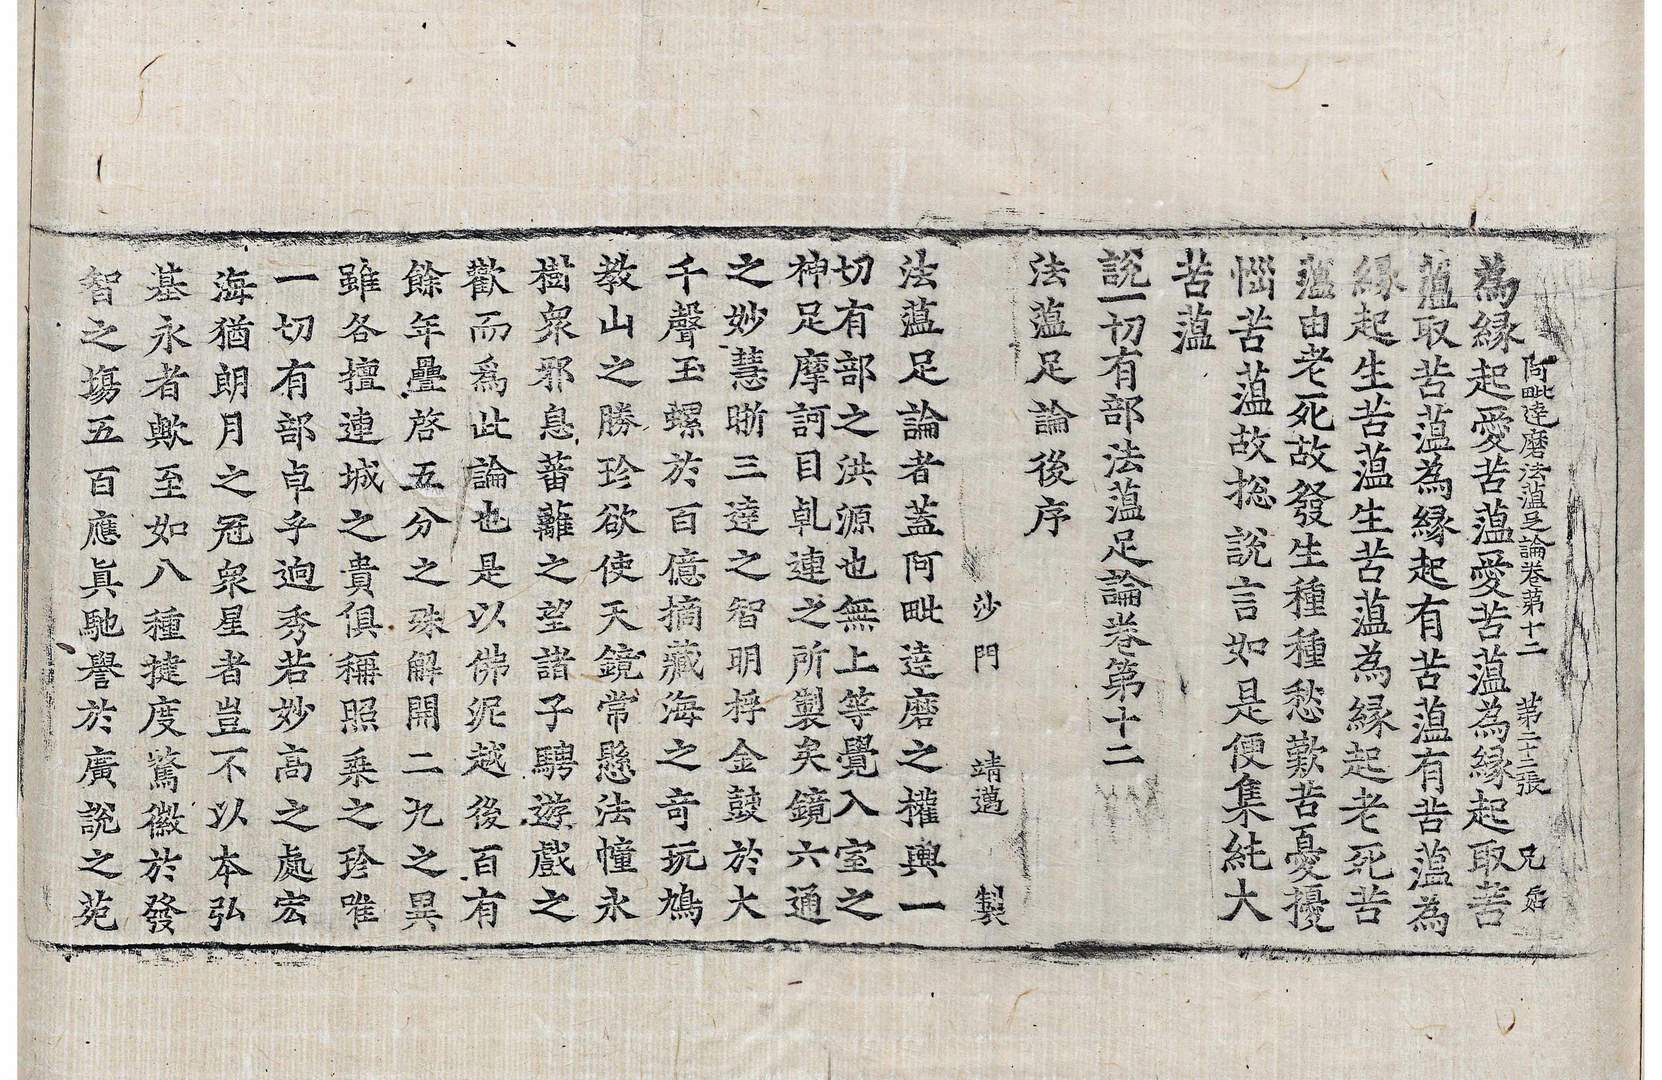 阿毗達磨法蘊足論卷苐十二　苐二十三張　兄
為縁起愛苦蘊愛苦蘊為縁起取苦
蘊取苦蘊為縁起有苦蘊有苦蘊為
縁起生苦蘊生苦蘊為縁起老死苦
蘊由老死故發生種種愁歎苦憂擾
惱苦蘊故揔說言如是便集純大
苦蘊
說一切有部法蘊足論卷第十二
法蘊足論後序
沙門　靖邁　製
法蘊足論者蓋阿毗達磨之權輿一
切有部之洪源也無上等覺入室之
神足摩訶目乹連之所製矣鏡六通
之妙慧晣三達之智明桴金鼓於大
千聲玉螺於百億摘藏海之竒玩鳩
教山之勝珍欲使天鏡常懸法幢永
樹衆邪息蕃蘺之望諸子騁遊戲之
歡而爲此論也是以佛泥越後百有
餘年疊啓五分之殊解開二九之異
雖各擅連城之貴俱稱照乘之珍唯
一切有部卓乎迥秀若妙高之處宏
海猶朗月之冠衆星者豈不以本弘
基永者歟至如八種揵度騖徽於發
智之塲五百應眞馳譽於廣說之菀